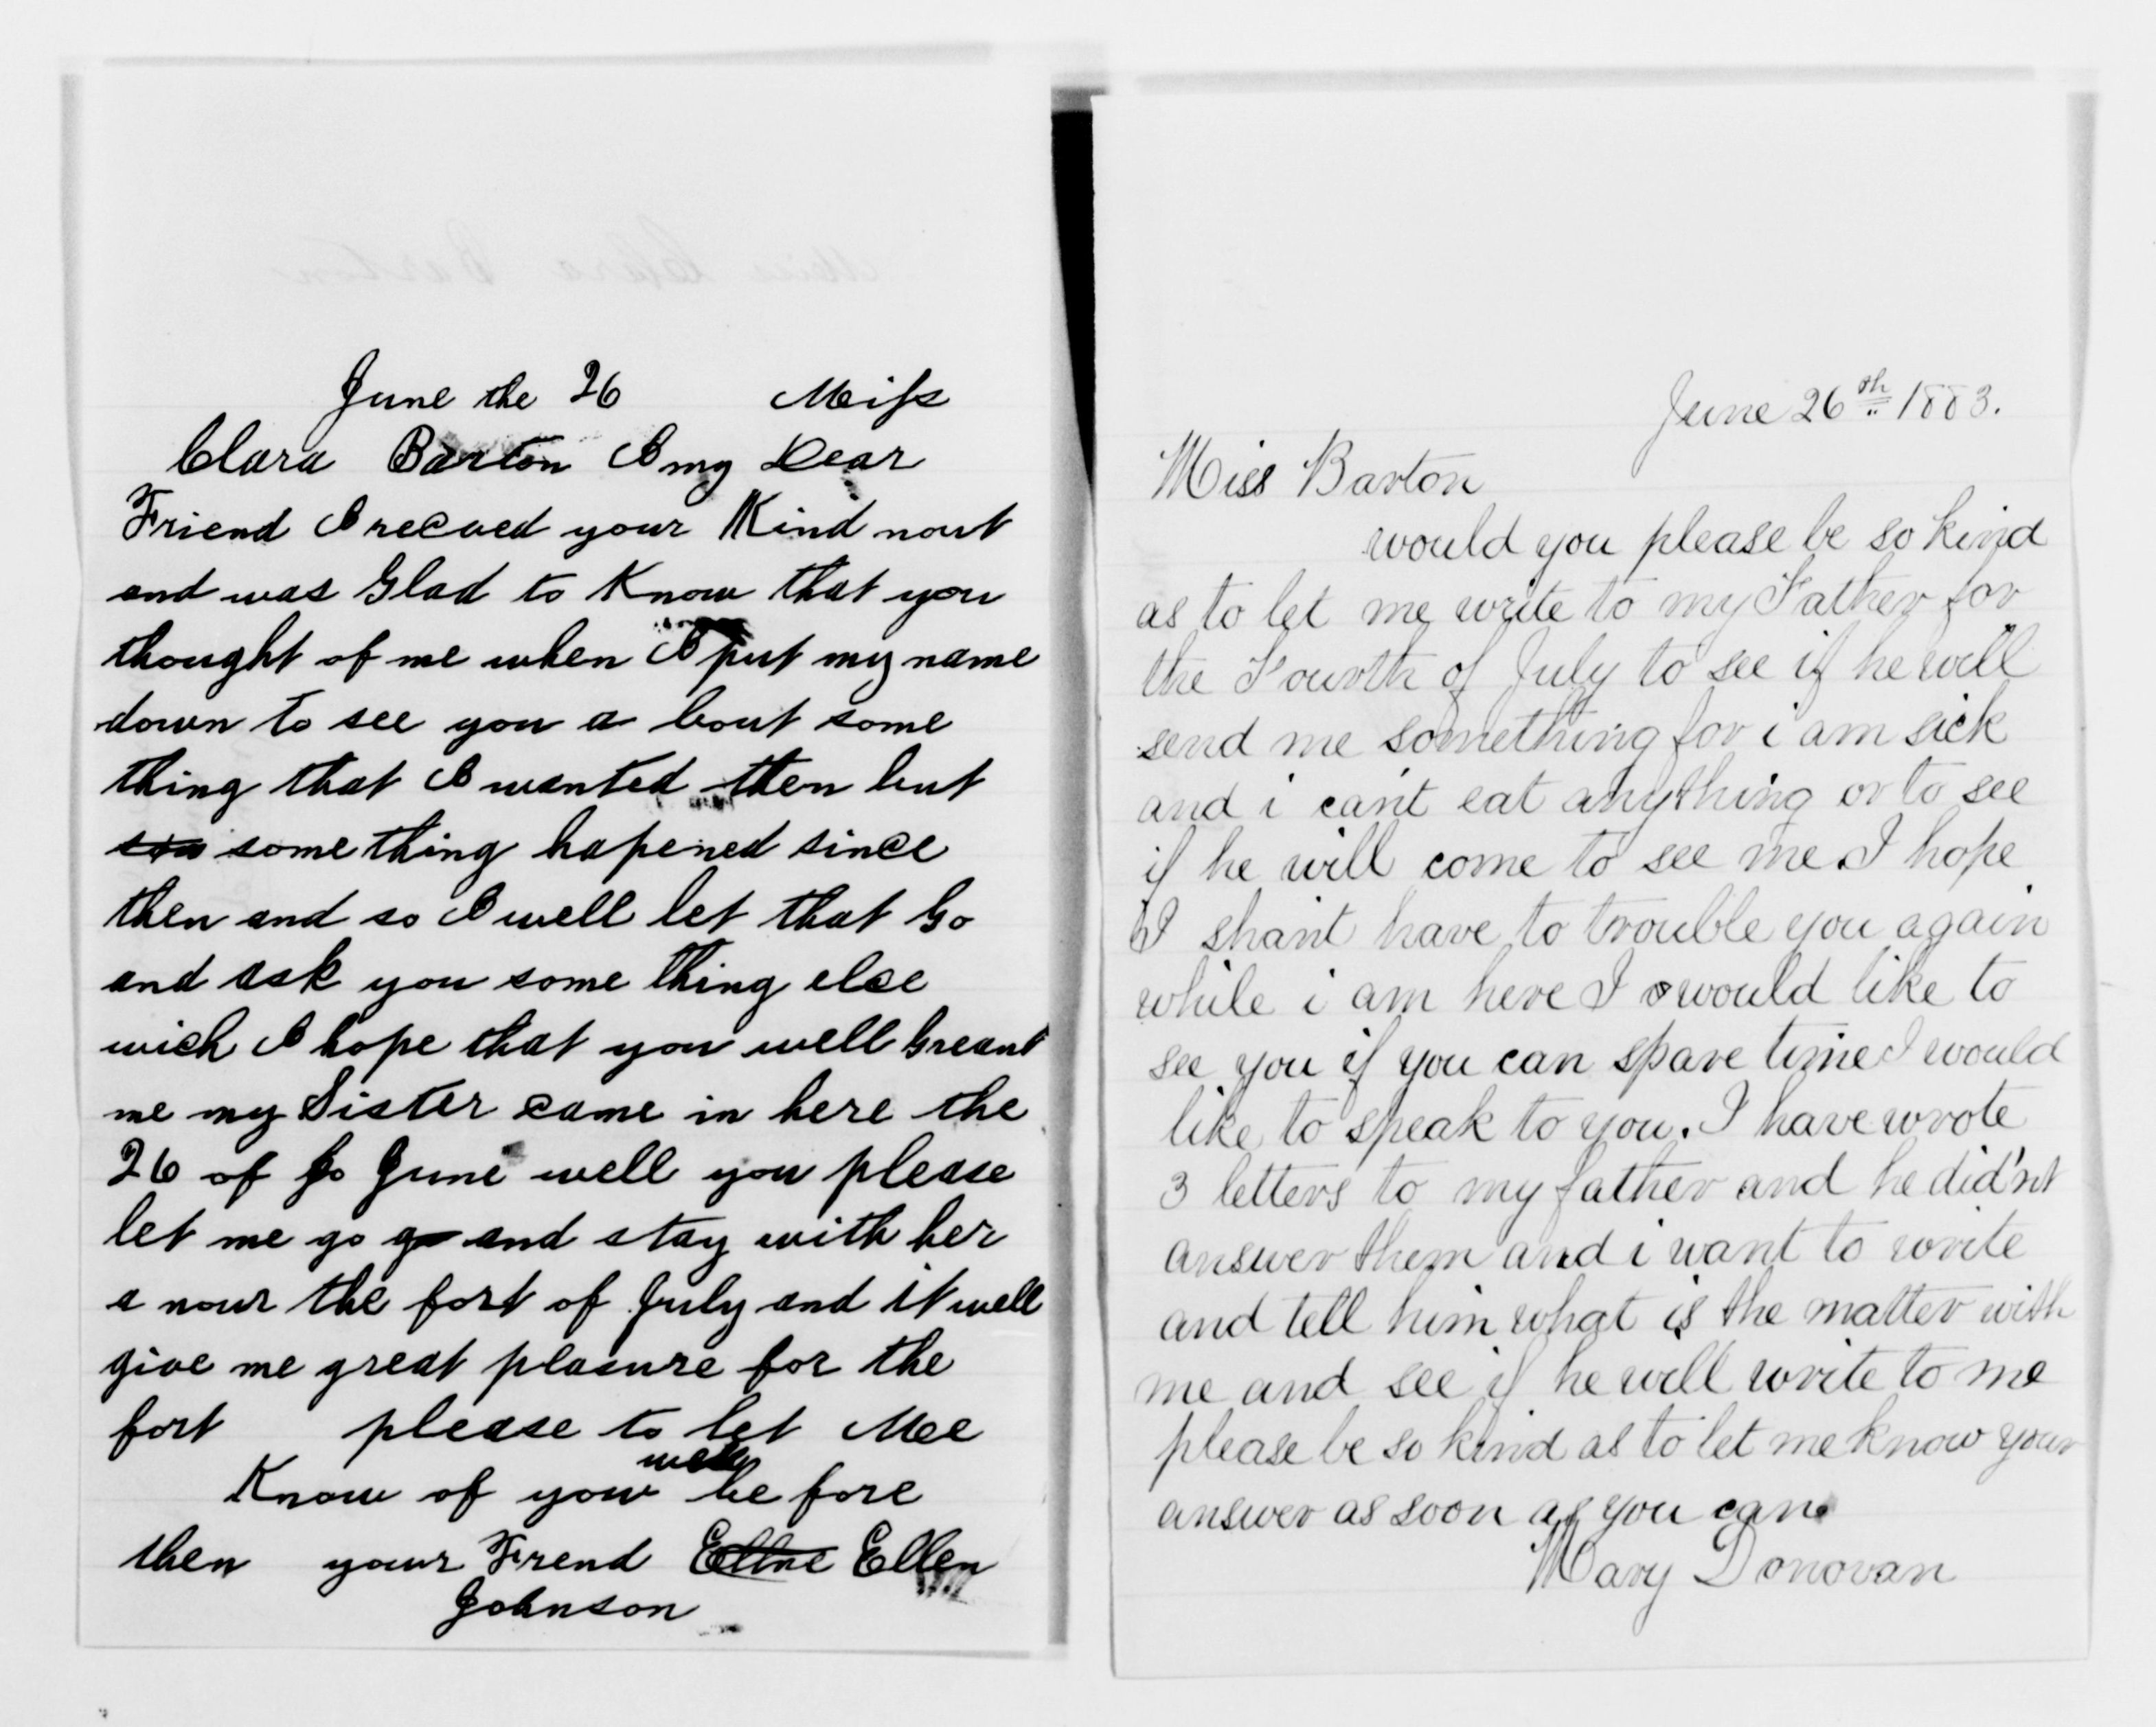 June the 26 Miss
Clara Barton I my Dear
Friend I recved your Kind nout
and was Glad to Know that you
thought of me when I put my name
down to see you a bout some
thing that I wanted then but
some thing hapened since
then and so I well let that Go
and ask you some thing else
wich I hope that you well Greant
me my Sister came in here the
26 of Jo June well you please
let me go go and stay with her
a nour the fort of July and it well
give me great plasure for the
fort please to let Mee
Know of you well be fore
then your Frend Ellne Ellen
Johnson
June 26th 1883.
Miss Barton
would you please be so kind
as to let me write to my Father for
the Fourth of July to see if he will
send me something for i am sick
and i can't eat anything or to see
if he will come to see me. I hope
I shan't have to trouble you again
while i am here I would like to
see you if you can spare time I would
like to speak to you. I have wrote
3 letters to my father and he did'nt
answer them and i want to write
and tell him what is the matter with
me and see if he will write to me
please be so kind as to let me know your
answer as soon as you can.
Mary Donovan